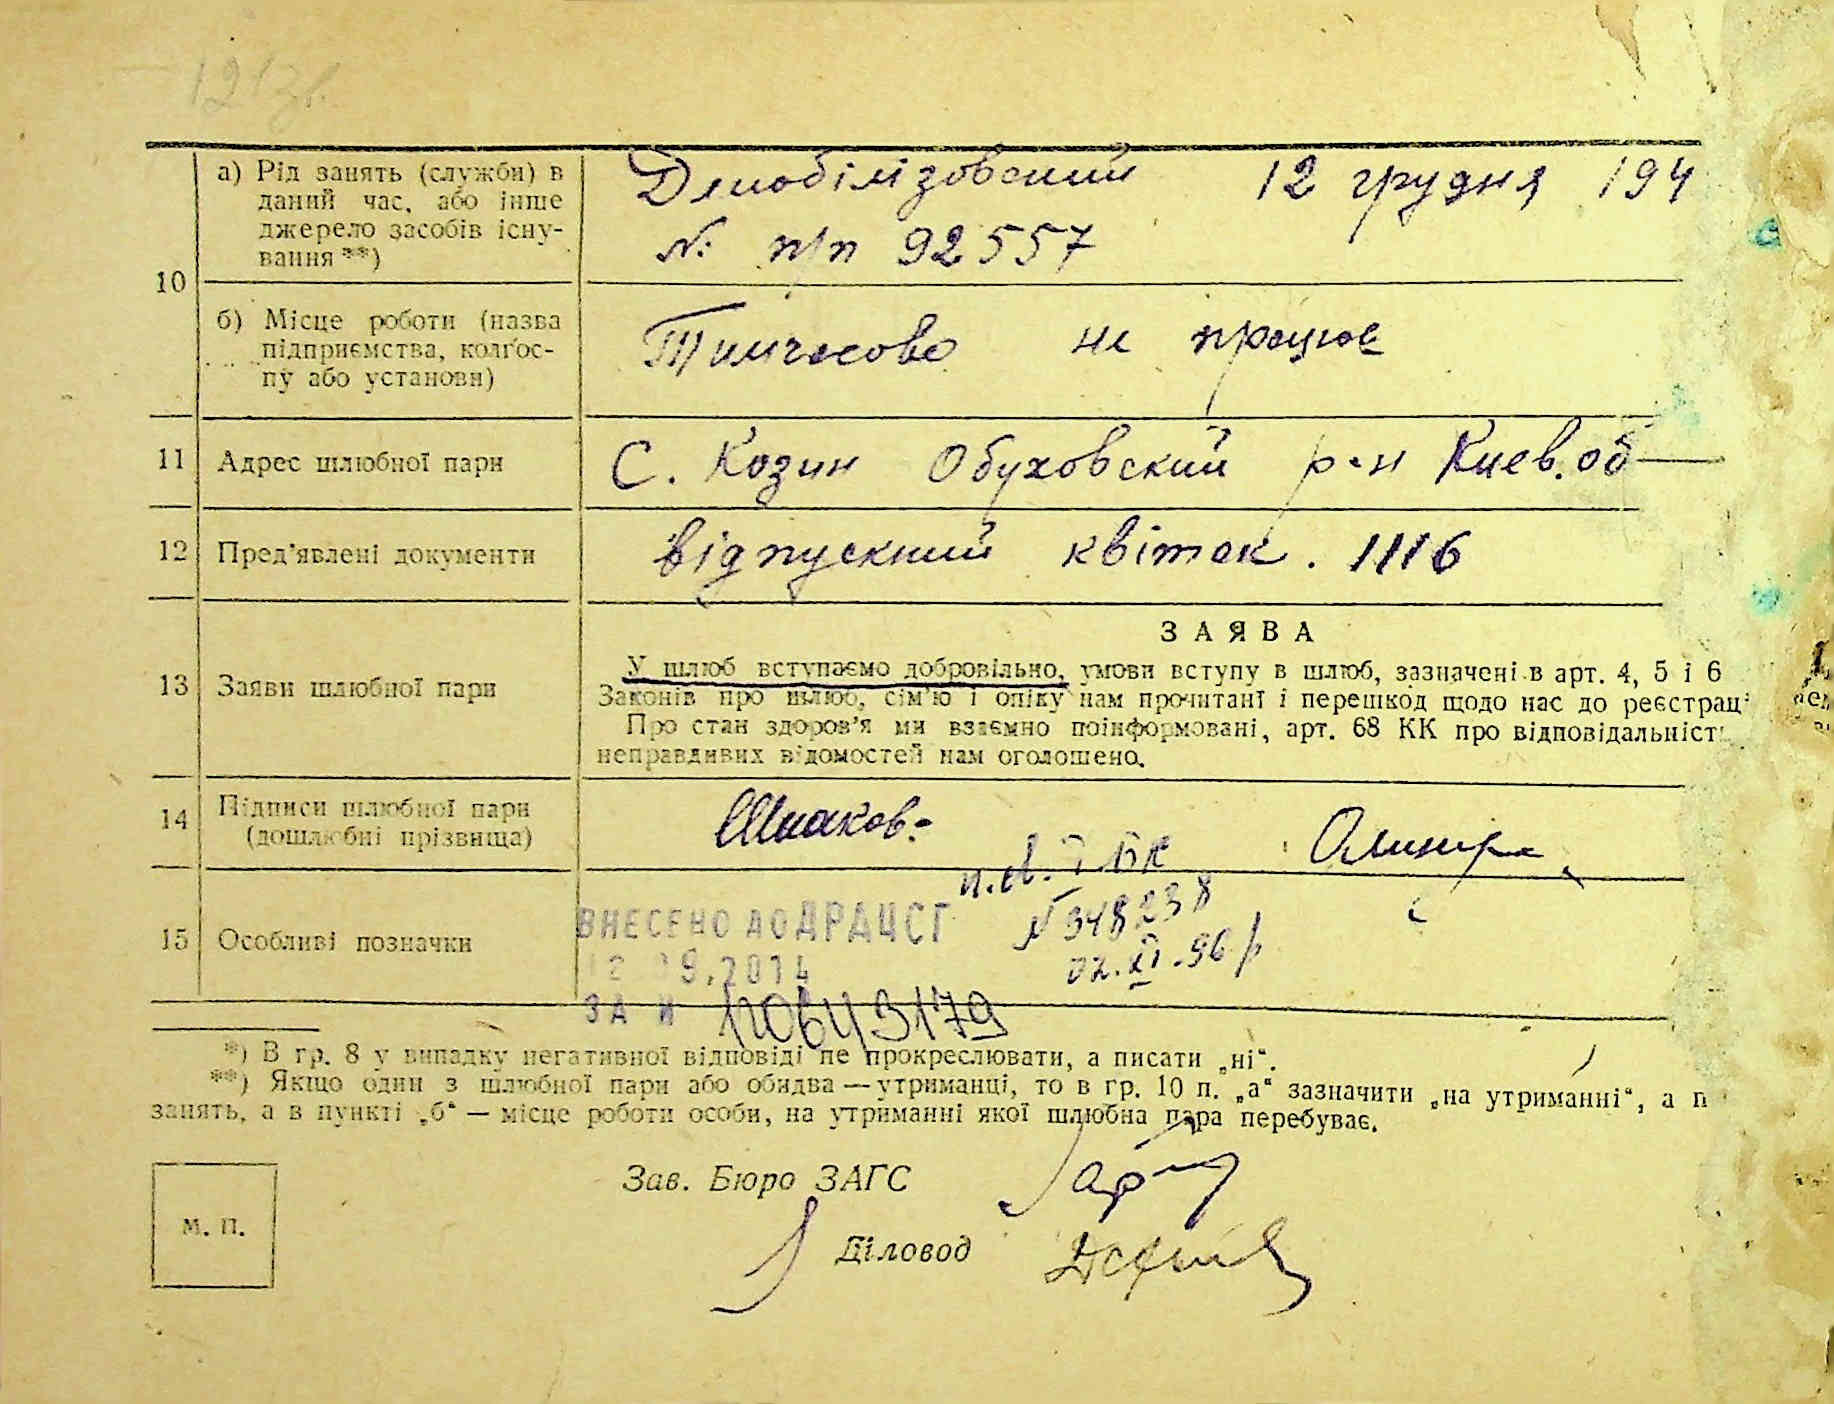 а) Рід занять (служби) в
даний час, або інше
джерело засобів існу-
вання **)
Демобілізовоний 12 грудня 194
№ п/п 92557
10
б) Місце роботи (назва
підприємства, колгос-
пу або установи)
Тимчасово не працює
11 Адрес шлюбної пари
С. Козин Обуховский р-н Киев. об
12 Пред'явлені документи
відпускний квіток. 1116
ЗАЯВА
13 Заяви шлюбної пари
У шлюб вступаємо добровільно, умови вступу в шлюб, зазначені в арт. 4, 5 і 6
Законів про шлюб, сім'ю і опіку нам прочитані і перешкод щодо нас до реєстрац
Про стан здоров'я ми взаємно поінформовані, арт. 68 КК про відповідальніст
неправдивих відомостей нам оголошено.
14 Підписи шлюбної пари
(дошлюбні прізвища)
15 Особливі позначки
ВНЕСЕНО ДО ДРАЦСГ
2014
ЗА №
№ 348238
02.XI.96 р
*) В гр. 8 у випадку негативної відповіді не прокреслювати, а писати „ні“.
**) Якщо один з шлюбної пари або обидва — утриманці, то в гр. 10 п. „а“ зазначити „на утриманні“, а п
занять, а в пункті „б“ — місце роботи особи, на утриманні якої шлюбна пара перебуває.
Зав. Бюро ЗАГС
М. П.
Діловод